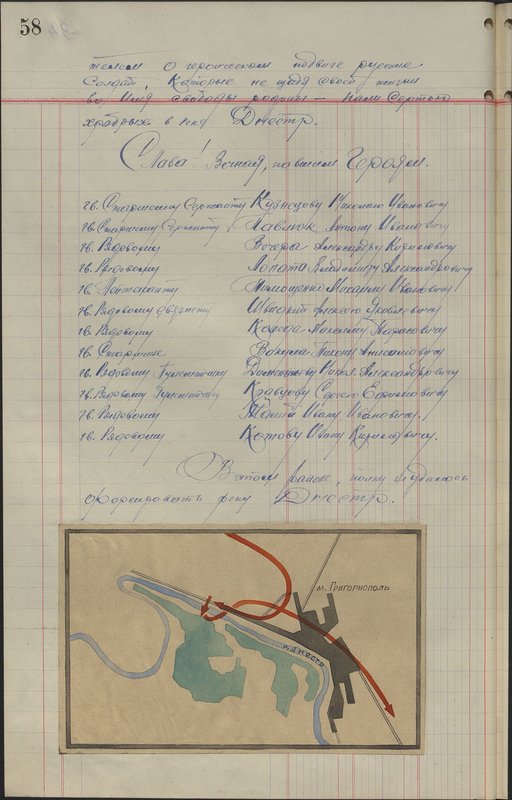 58
телем о героическом подвиге русских
Солдат, которые не щадя своей жизни
во имя свободы родины — пали смертью
храбрых в р. Днестр.
Слава! Вечная, павшим Героям.
гв. Старшему Сержанту Кузнецову Михаилу Ивановичу
гв. Старшему Сержанту Павлюк Антону Ивановичу
гв. Рядовому Вечера Александру Кириловичу
гв. Рядовому Лопата Владимиру Александровичу
гв. Лейтенанту Тимощенко Михаилу Ивановичу
гв. Рядовому Алексею Яковлевичу
гв. Рядовому Максиму Тарасовичу
гв. Старшине
гв. Рядовому Пулеметчику Александровичу
гв. Рядовому Пулеметчику Кравцову Сергею Ефимовичу
гв. Рядовому Ивану Ивановичу.
гв. Рядовому Котову Ивану Кириловичу.
В этом районе, полку не удалось
форсировать реку Днестр.
м. Григориополь
р. Днестр